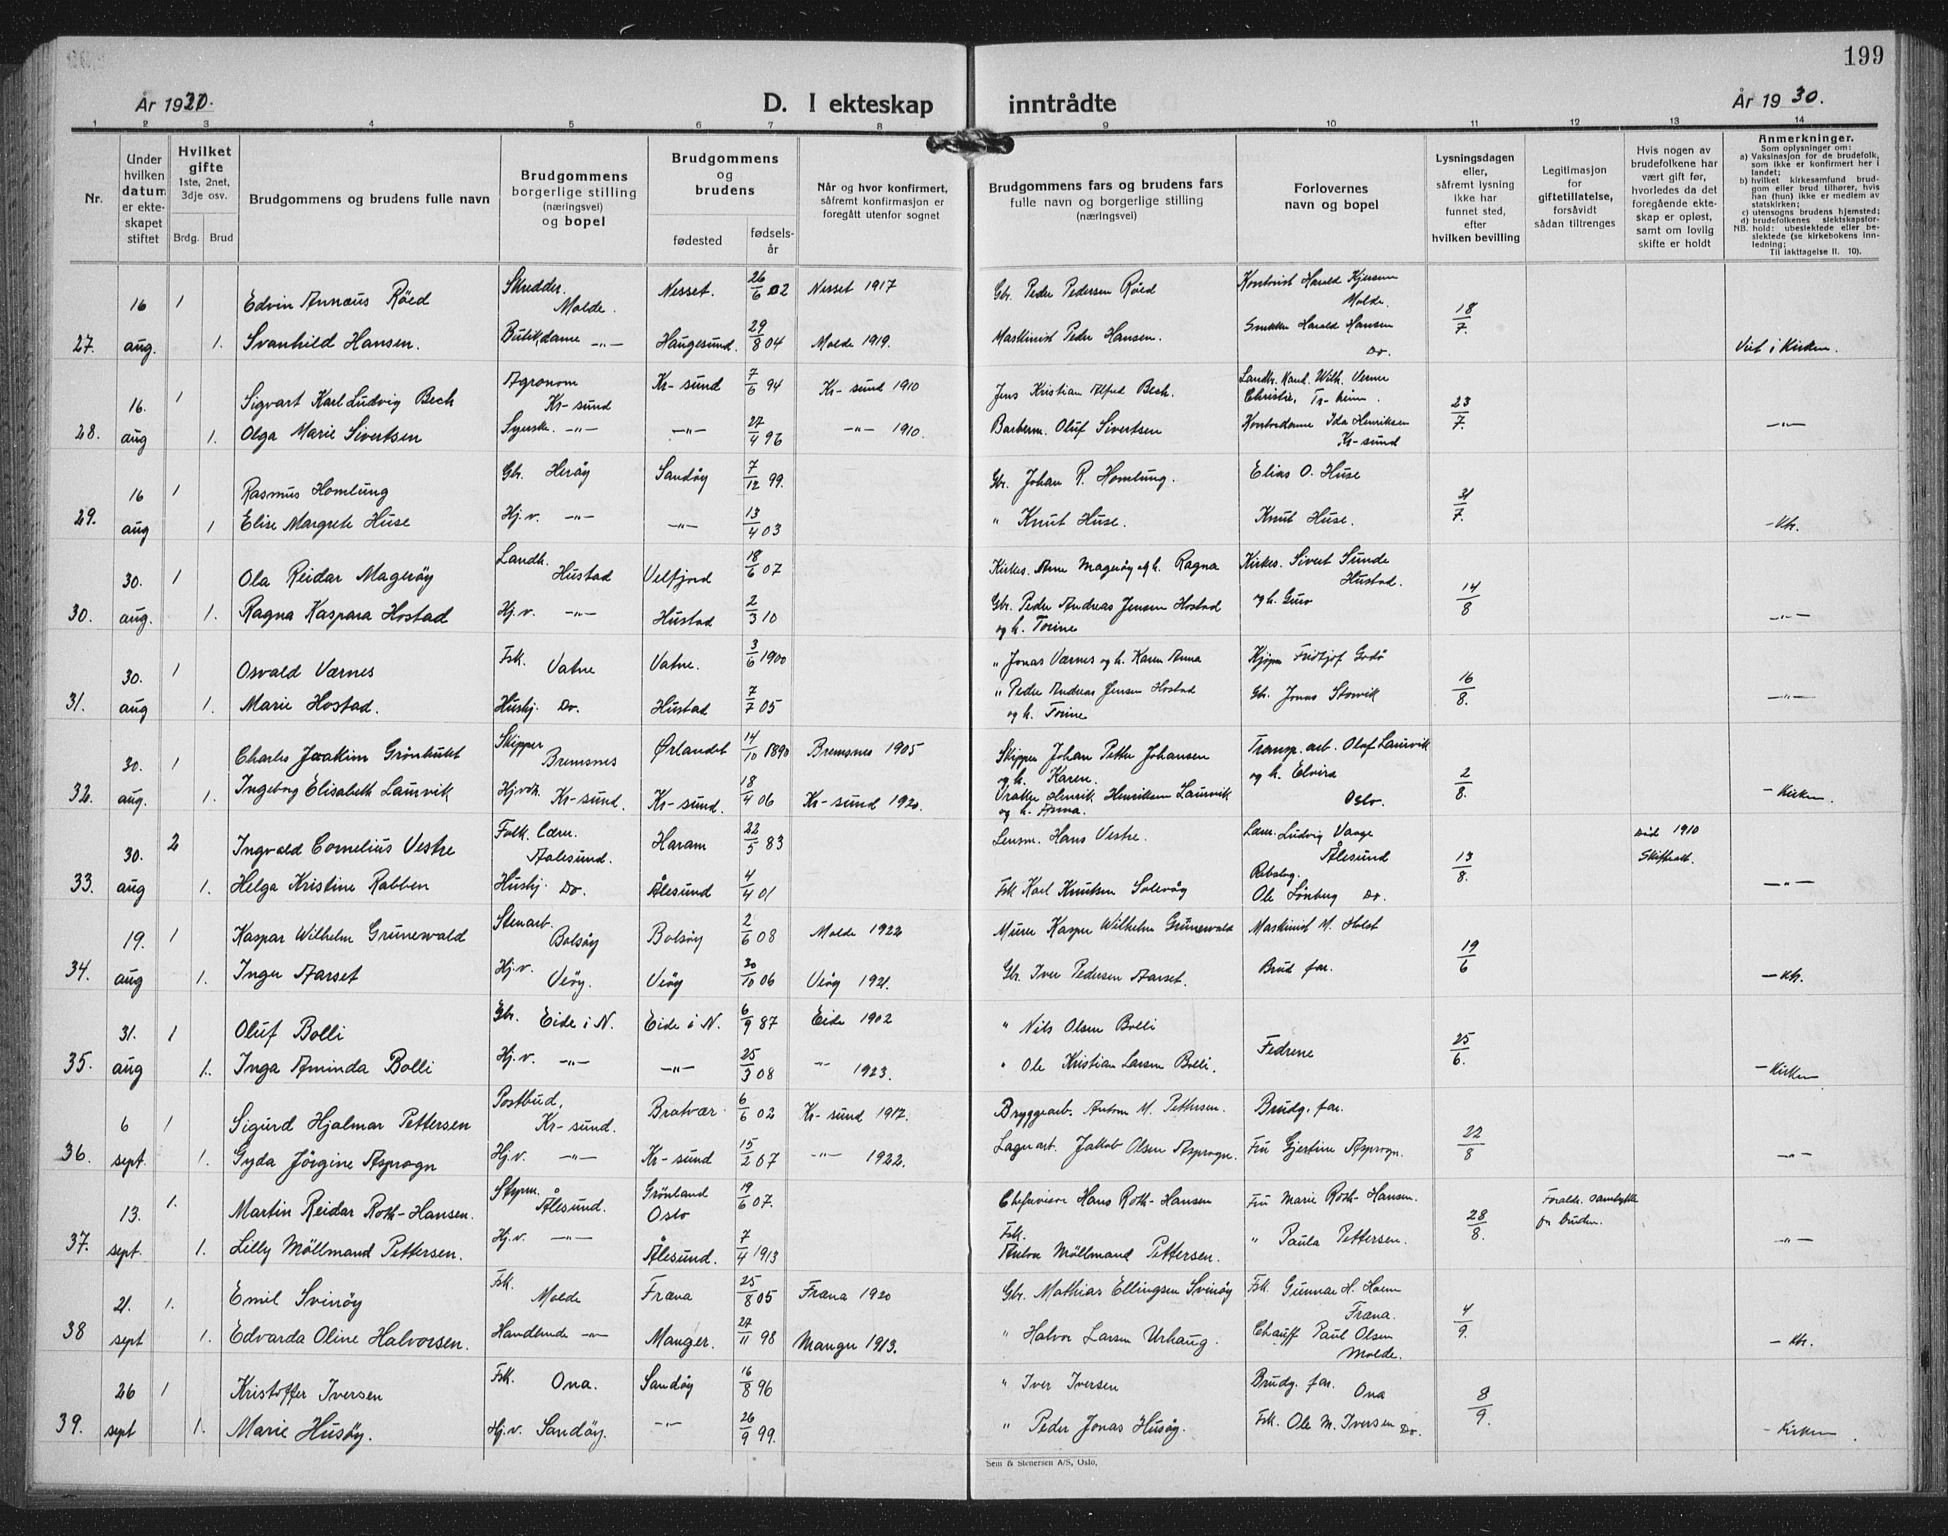 199
År 1930.
D. I ekteskap inntrådte
År 1930.
1 2 3 4 5 6 7 8 9 10 11 12 13 14
Nr.
Under hvilken datum er ekteskapet stiftet
Hvilket gifte 1ste, 2net, 3dje osv.
Brdg. Brud
Brudgommens og brudens fulle navn
Brudgommens borgerlige stilling (næringsvei) og bopel
Brudgommens og brudens
fødested
fødselsår
Når og hvor konfirmert, såfremt konfirmasjon er foregått utenfor sognet
Brudgommens fars og brudens fars fulle navn og borgerlige stilling (næringsvei)
Forlovernes navn og bopel
Lysningsdagen eller, såfremt lysning ikke har funnet sted, efter hvilken bevilling
Legitimasjon for giftetillatelse, forsåvidt sådan tiltrenges
Hvis nogen av brudefolkene har vært gift før, hvorledes da det foregående ekteskap er opløst, samt om lovlig skifte er holdt
Anmerkninger.
Som oplysninger om:
a) Vaksinasjon for de brudefolk, som ikke er konfirmert her i landet;
b) hvilket kirkesamfund brudgom eller brud tilhører, hvis han (hun) ikke er medlem av statskirken;
c) utensogns brudens hjemsted;
d) brudefolkenes slektskapsforhold: ubeslektede eller beslektede (se kirkebokens innledning;
NB. Til iakttagelse II. 10).
16 1 Edvin Annæus Røed Skredder. Molde. Nesset. 26/6 02 Nesset 1917 Gbr. Peder Pedersen Røed Kontorist Harald Molde.
27. aug. 1. Svanhild Hansen. Butikdame -"- Haugesund. 29/8 04 Molde 1919. Maskinist Peder Hansen. Harald Hansen Do. 18/7. Viet i Kirken.
16. 1 Sigvart Karl Ludvig Bech Agronom Kr-sund Kr-sund 7/6 94 Kr-sund 1910 Jens Kristian Alfred Bech. Landbr. Kand. Wilh. Verner Christie, Tr-heim.
28. aug 1. Olga Marie Sivertsen Syersk. -"- -"- 27/4 96 -"- 1910. Barberm. Oluf Sivertsen Kontordame Ida Henriksen Kr-sund 23/7. -"-
16 1 Rasmus Homlung Gbr. Herøy Sandøy 7/12 99. Gbr. Johan R. Homlung. Elias O. Huse
29. aug 1 Elise Margrete Huse Hj.v. -"- -"- 13/4 03 " Knut Huse. Knut Huse. 31/7. - Ktr.
30. 1 Ola Reidar Magerøy Landh. Hustad Velfjord 18/6 07 Kirkes. Arne Magerøy og h. Ragna Kirkes. Sivert Sunde Hustad.
30. aug. 1. Ragna Kaspara Hostad Hj.v. -"- Hustad 2/3 10 Gbr. Peder Andreas Jensen Hostad og h. Torine og h. Guro 14/8 -"-
30. 1 Osvald Værnes Fsk. Vatne Vatne. 3/6 1900 " Jonas Værnes og h. Karen Anna Kjøpm Fridtjof Godø
31. aug 1. Marie Hostad. Hushj. Do. Hustad 7/7 05 " Peder Andreas Jensen Hostad og h. Torine Gbr. Jonas Storvik 16/8. -"-
30. 1 Charles Joakim Grønhulet Skipper Bremsnes Ørlandet 14/10 1890 Bremsnes 1905 Skipper Johan Petter Johansen og h. Karen. Transp. arb. Olaf Laurvik og h. Elvira Oslo.
32. aug. 1. Ingeborg Elisabeth Laurvik Hj.vdr. Kr-sund. Kr-sund. 18/4 06 Kr-sund 1920. Vraker Henrik Henriksen Laurvik og h. Anna. 2/8. - Kirken.
30. 2 Ingvald Cornelius Vestre Folk. Lærer. Aalesund. Haram 22/5 83 Lensm. Hans Vestre. Lærer. Ludvig Vaage Ålesund død 1910 Skifteatt.
33. aug 1. Helga Kristine Rabben Hushj. Do. Ålesund 4/4 01 Fsk Karl Knutsen Solevåg Ole Lønberg Do. 13/8. -"-
19. 1 Kaspar Wilhelm Grunewald Stenarb. Bolsøy Bolsøy 2/6 08 Molde 1922 Murer Kasper Wilhelm Grünewald Maskinist M. Holst
34. aug 1. Inger Aarset Hj.v. Veøy. Veøy 30/10 06 Veøy 1921. Gbr. Iver Pedersen Aarset. Brud. far. 19/6 - Ktr.
31. 1 Oluf Bolli Gbr. Eide i N. Eide i N. 6/9 87 Eide 1902 " Nils Olsen Bolli
35. aug 1. Inga Aminda Bolli Hj.v. -"- -"- 25/3 08 -"- 1923. " Ole Kristian Larsen Bolli. Fedrene 25/6. - Kirken
6 1 Sigurd Hjalmar Pettersen Postbud, Kr-sund. Bratvær 6/6 02 Kr-sund 1917. Bryggearb. Anton M. Pettersen. Brudg. far.
36. sept. 1. Gyda Jörgine Asprogn Hj.v. -"- Kr-sund 15/2 07 -"- 1922. Lagerarb. Jakob Olsen Asprogn. Fru Gjertine Asprogn. 22/8 -"-
13. 1. Martin Reidar Roth-Hansen. Styrm. Ålesund. Grönland Oslo 19/6 07. Hans Roth-Hansen Fru Marie Roth-Hansen. Foreldr. samtykke for bruden.
37. sept. 1. Lilly Möllmand Pettersen. Hj.v. -"- Ålesund. 7/4 1913 Fsk. Anton Möllmand Pettersen. " Paula Pettersen. 28/8. -"-
21. 1. Emil Svinøy Fsk. Molde Fræna 25/8 05 Fræna 1920 Gbr. Mathias Ellingsen Svinøy Fsk. Gunnar H. Fræna.
38 sept 1. Edvarda Oline Halvorsen. Handlende -"- Manger. 27/11 98 Manger 1913. " Halvor Larsen Urhaug. Chauff Paul Olsen Molde. 4/9. - Ktr.
26 1 Kristoffer Iversen Fsk. Ona. Sandøy 16/8 96 " Iver Iversen Brudg. far. Ona
39. sept 1. Marie Husøy. Hj.v. Sandøy. -"- 26/9 99. " Peder Jonas Husøy. Fsk. Ole M. Iversen Do. 8/9. - Kirken.
Sem & Stenersen A/S, Oslo.